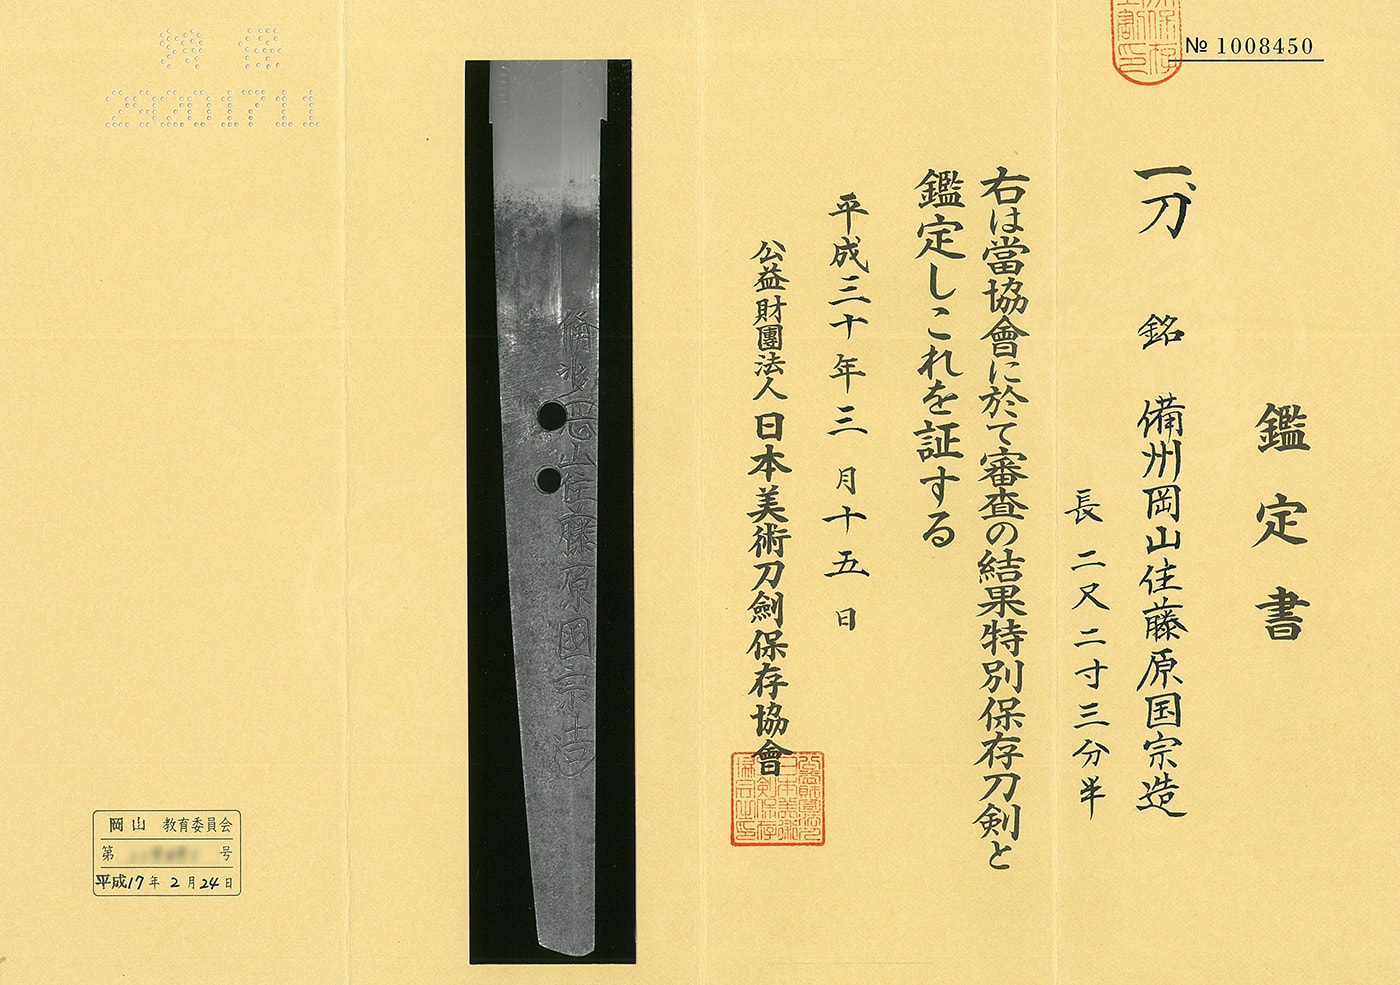 № 1008450
鑑定書
一、刀 銘 備州岡山住藤原国宗造
長 二尺二寸三分半
右は當協會に於て審査の結果特別保存刀剣と
鑑定しこれを証する
平成三十年三月十五日
公益財團法人 日本美術刀劍保存協會
備州岡山住藤原國宗造
岡山 教育委員会
第 号
平成17年2月24日